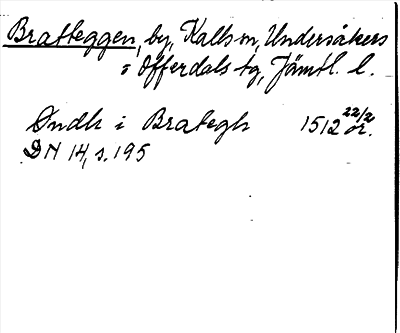 Bratteggen, by, Kalls sn, Undersåkers
o Offerdals tg, Jämtl. l.
Öndh i Brategh 1512 22/2 or.
DN 14, s. 195